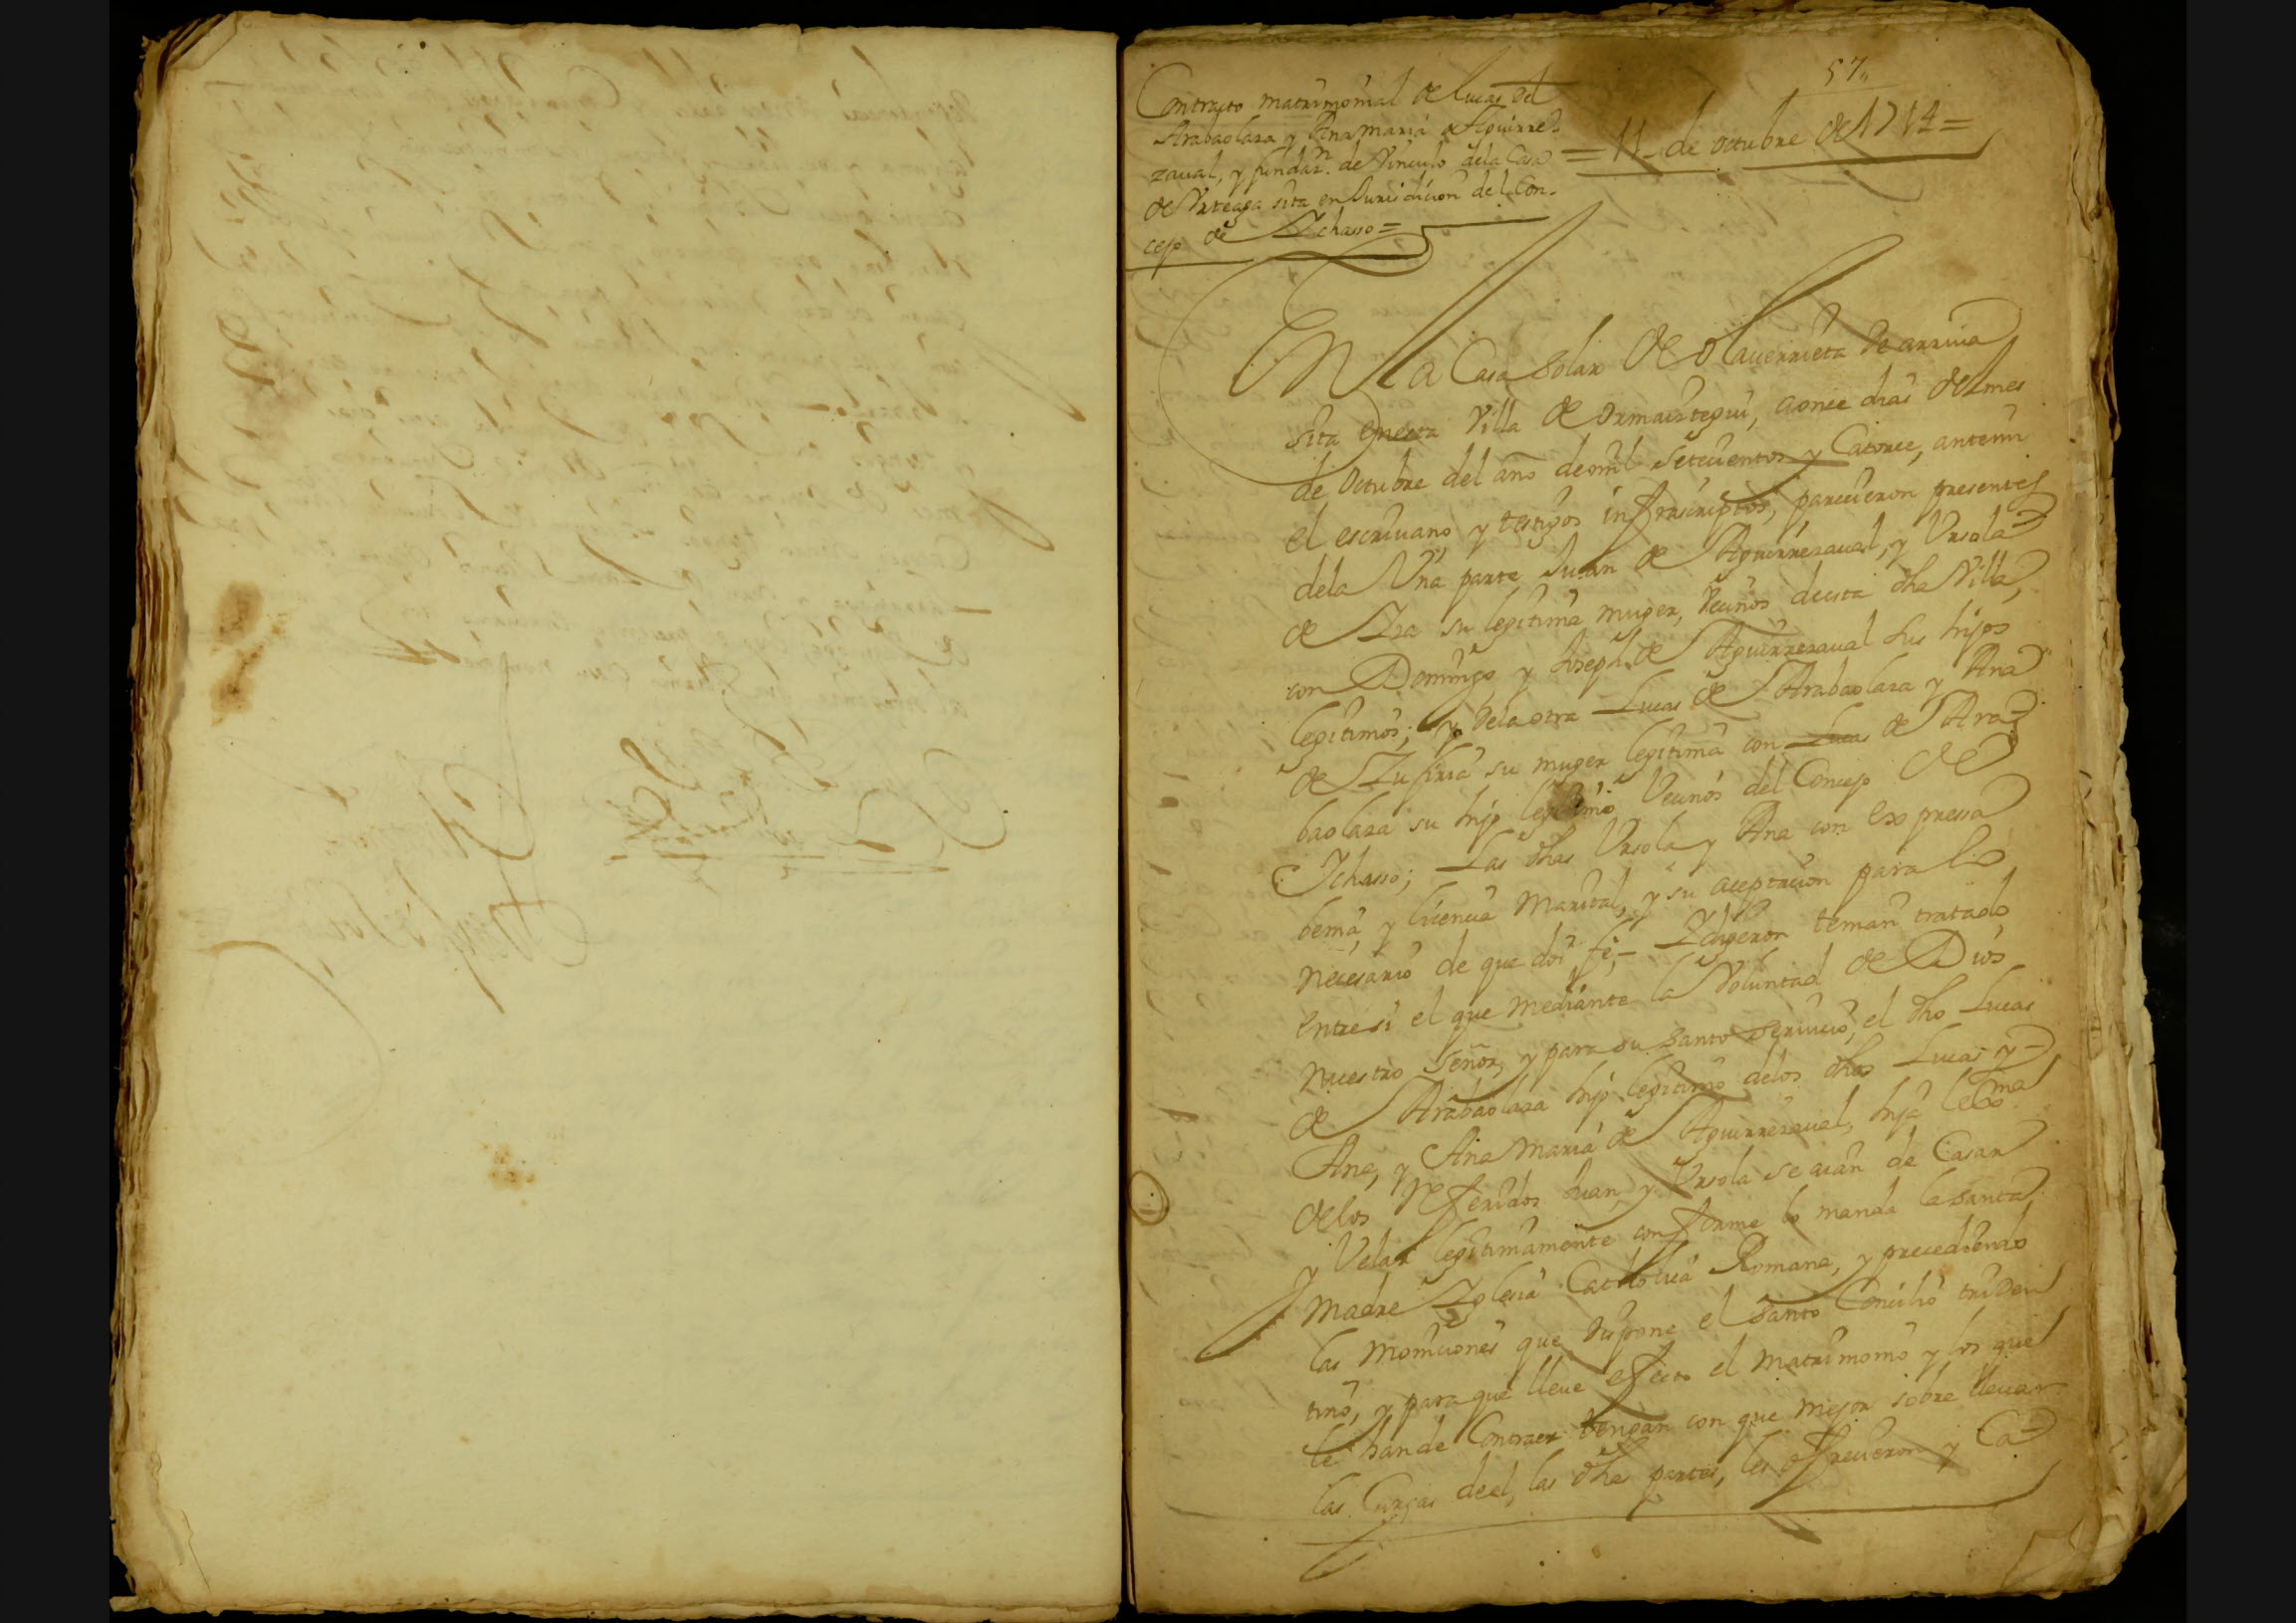 57
Contracto matrimonial de Lucas de
Arabaolaza y Ana maria de Aguirre
zaual, y fundaz.n de Vinculo dela Casa
de Vrteaga sita en Jurisdicion del Con-
cejo de Ychasso =
= 11 de octubre de 1714 =
En la Casa Solar de olauerrieta de arriua
sita enesta Villa de ormaiztegui, a once dias del mes
de octubre del año de mil setecientos y Catorce, antemi
el escriuano y testigos infrascriptos, parecieron presentes
dela Vna parte Juan de Aguirrezaual, y Vrsola
de Yza su legitima muger, vecinos de esta dha Villa,
con Domingo y Joseph de Aguirrezaual sus hijos
legitimos; y dela otra Lucas de Arabaolaza y Ana
de Zufiria su muger legitima con Lucas de Ara-
baolaza su hijo legitimo Vecinos del Concejo de
Ychasso; Las dhas Vrsola y Ana con expressa
benia, y licencia Marital, y su aceptacion para lo
necesario de que doi fe,- Y digeron tenian tratado
entre si el que mediante la Voluntad de Dios
nuestro Señor, y para su santo seruicio, el dho Lucas
de Arabaolaza hijo legitimo delos dhos Lucas y
Ana, y Ana Maria de Aguirrezaual, hija legma
delos referidos Juan, y Vrsola se aian de Casar
y Velar legitimamente conforme lo manda la santa
Madre Yglesia Catholica Romana, y precediendo
las moniciones que dispone el santo Concilio triden
tino, y para que lleue efecto el matrimonio y los que
le hande Contraer tengan con que mejor sobre lleuar
las Cargas de el, las dhas partes, les ofrecieron y Ca-